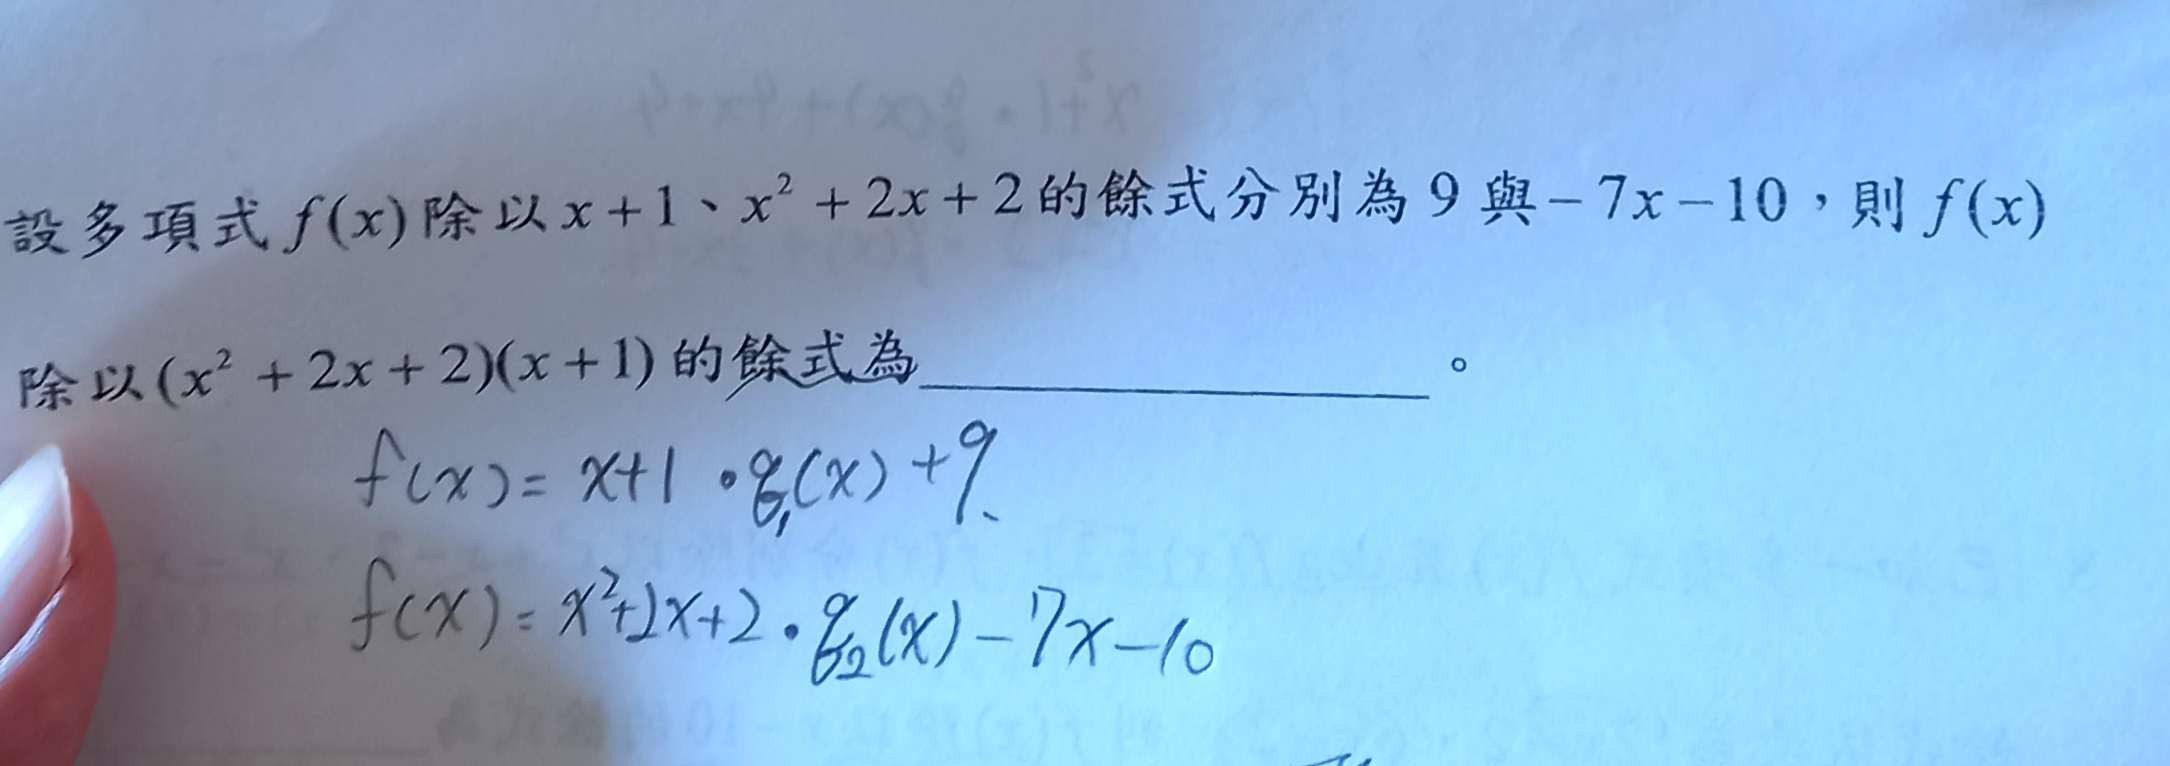 設多項式 f(x) 除以 x+1、x²+2x+2 的餘式分別為 9 與 −7x−10,則 f(x)
除以 (x²+2x+2)(x+1) 的餘式為＿＿＿＿＿＿。
f(x)= x+1 · q₁(x) +9
f(x)= x²+2x+2 · q₂(x) −7x−10